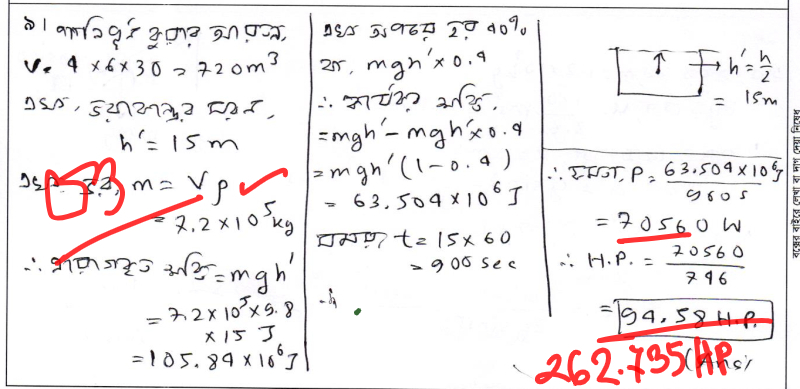 ৯। পানিপূর্ণ কুয়ার আয়তন,
V = 4 × 6 × 30 = 720 m³
এখন, ভরকেন্দ্রের সরণ,
h′ = 15 m
এখন, ভর, m = Vρ
= 7.2 × 10⁵ kg
= mgh′
= 7.2 × 10⁵ × 9.8
× 15 J
= 105.84 × 10⁶ J
এখন অপচয় হয় 40%
বা, mgh′ × 0.4
∴ কার্যকর শক্তি,
= mgh′ − mgh′ × 0.4
= mgh′ (1 − 0.4)
= 63.504 × 10⁶ J
সময়, t = 15 × 60
= 900 sec
h′ = h/2
= 15m
∴ ক্ষমতা, P = 63.504 × 10⁶ J / 900 s
= 70560 W
∴ H.P. = 70560 / 746
= 94.58 H.P.
(Ans)
262.735 HP
বক্সের বাইরে লেখা বা দাগ দেয়া নিষেধ